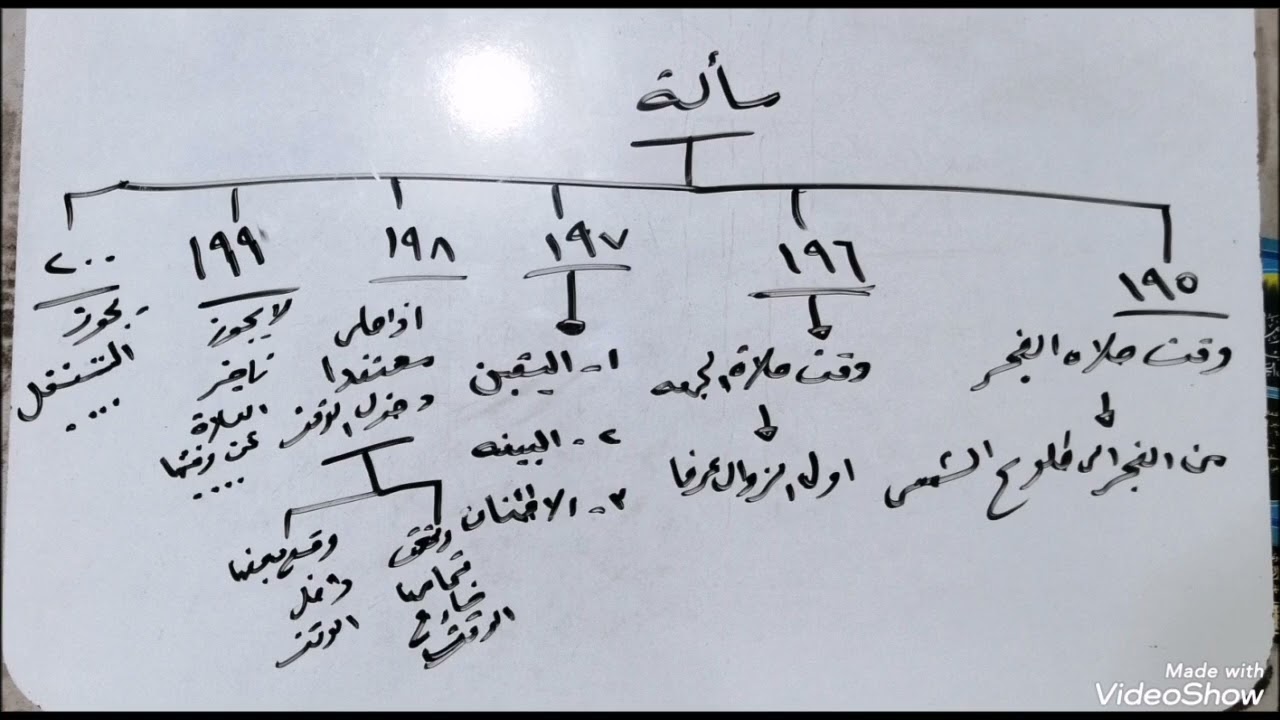 مسألة
١٩٥
وقت صلاه الفجر
من الفجر الى طلوع الشمس
١٩٦
وقت صلاة الجمعه
اول الزوال عرفا
١٩٧
١- اليقين
٢- البينه
٣- الاطمئنان
١٩٨
اذا صلى
معتقدا
دخول الوقت
وقعت تمامها
خارج
الوقت
وقع بعضها
داخل
الوقت
١٩٩
لا يجوز
تاخير
الصلاة
عن وقتها
....
٢٠٠
يجوز
التنفل
...
Made with
VideoShow